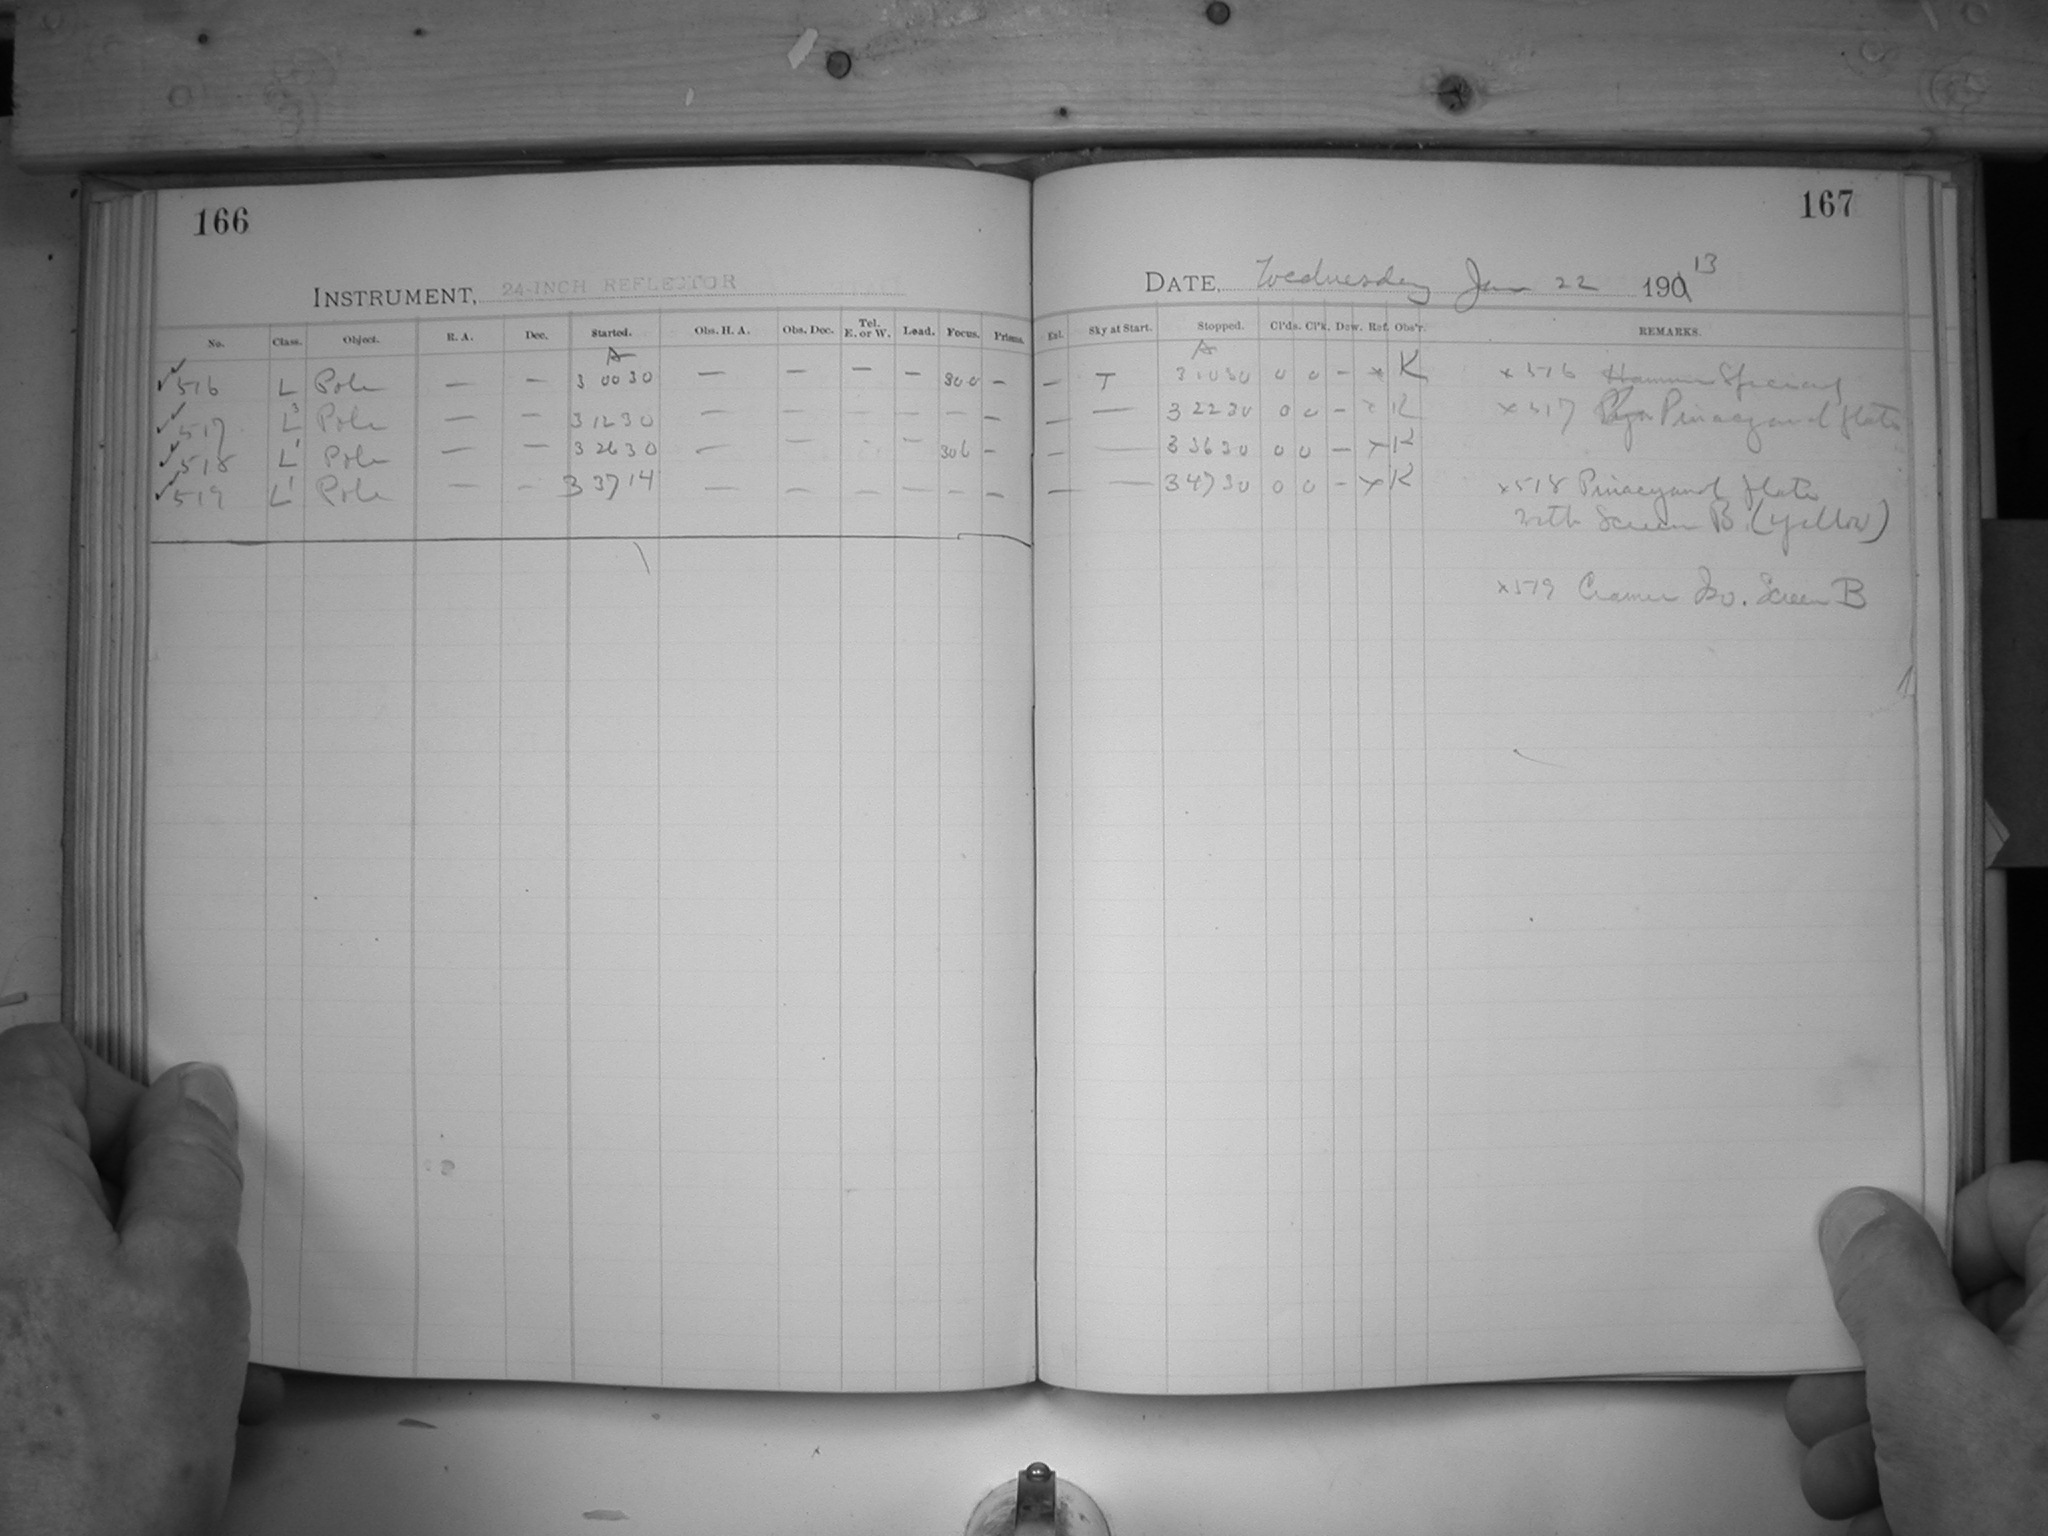 166
INSTRUMENT, 24-INCH REFLECTOR
No. Class. Object. R. A. Dec. Started. Obs. H. A. Obs. Dec. Tel. E. or W. Load. Focus. Prisms.
A
516 L Pole — — 3 00 30 — — — — 300 —
517 L3 Pole — — 3 12 30 — — — — — —
518 L1 Pole — — 3 26 30 — — - — 306 —
519 L1 Pole — — 3 37 14 — — — — — —
167
DATE, Wednesday Jan 22 190 13
Ext. Sky at Start. Stopped. Cl'ds. Cl'k. Dew. Ref. Obs'r. REMARKS.
A
— T 3 10 30 0 0 — x K x 516 Hammer Special
— — 3 22 30 0 0 — x K x 517 Pinacyanol plate
— — 3 36 30 0 0 — x K
— — 3 47 30 0 0 — x K x 518 Pinacyanol plate
with Screen B (yellow)
x 519 Cramer Iso. Screen B